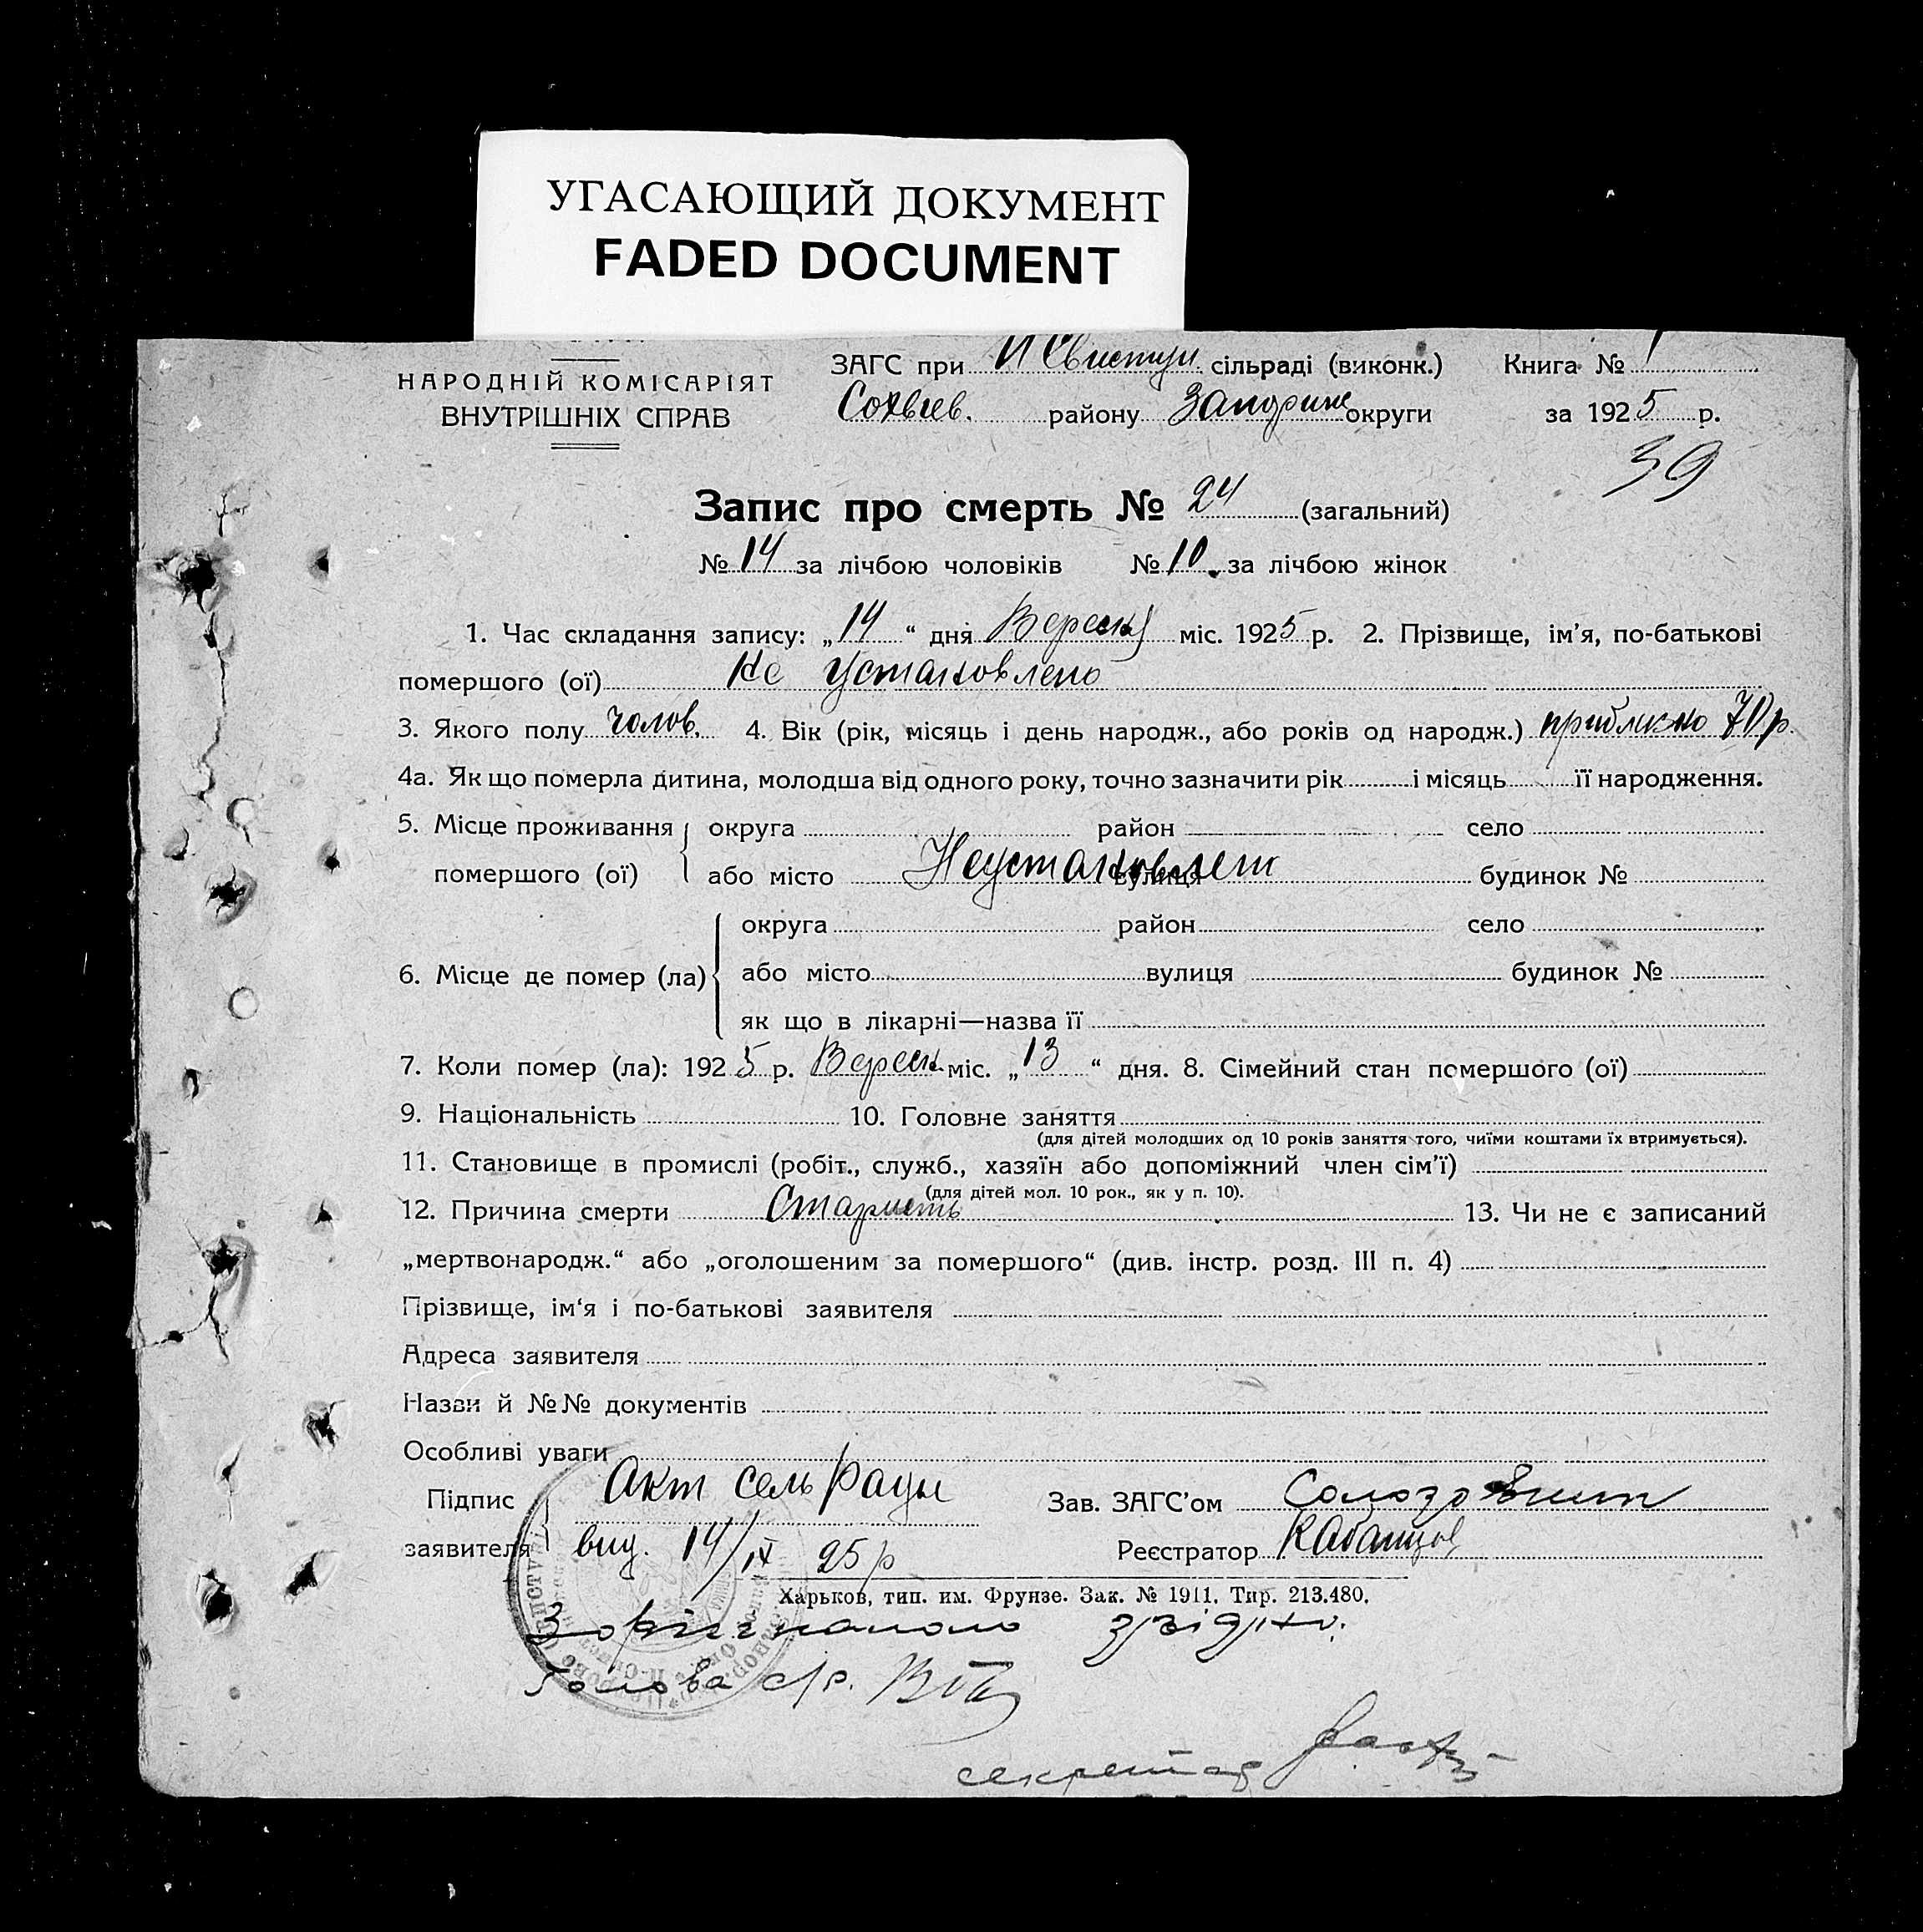 УГАСАЮЩИЙ ДОКУМЕНТ
FADED DOCUMENT
НАРОДНІЙ КОМІСАРІЯТ
ВНУТРІШНІХ СПРАВ
ЗАГС при П Свистун. сільраді (виконк.) Книга № 1
району округи за 1925 р.
39
Запис про смерть № 24 (загальний)
№ 14 за лічбою чоловіків № 10. за лічбою жінок
1. Час складання запису: „14“ дня Вересня міс. 1925 р. 2. Прізвище, ім'я, по-батькові
помершого (ої) Не установлено
3. Якого полу чолов. 4. Вік (рік, місяць і день народж., або років од народж.) приблизно 70 р.
4а. Як що померла дитина, молодша від одного року, точно зазначити рік і місяць її народження.
5. Місце проживання округа район село
помершого (ої) або місто Неустановлено вулиця будинок №
округа район село
6. Місце де помер (ла) або місто вулиця будинок №
як що в лікарні—назва її
7. Коли помер (ла): 1925 р. Вересн. міс. „13“ дня. 8. Сімейний стан помершого (ої)
9. Національність 10. Головне заняття
(для дітей молодших од 10 років заняття того, чиїми коштами їх втримується).
11. Становище в промислі (робіт., служб., хазяїн або допоміжний член сім'ї)
(для дітей мол. 10 рок., як у п. 10).
12. Причина смерти Старисть 13. Чи не є записаний
„мертвонародж.“ або „оголошеним за помершого“ (див. інстр. розд. III п. 4)
Прізвище, ім'я і по-батькові заявителя
Адреса заявителя
Назви й №№ документів
Особливі уваги
Підпис Акт сель Рады Зав. ЗАГС'ом
заявителя вид. 14/IX 25 р Реєстратор
Харьков, тип. им. Фрунзе. Зак. № 1911. Тир. 213.480.
З орігиналом згідно:
Голова с/р.
секретар